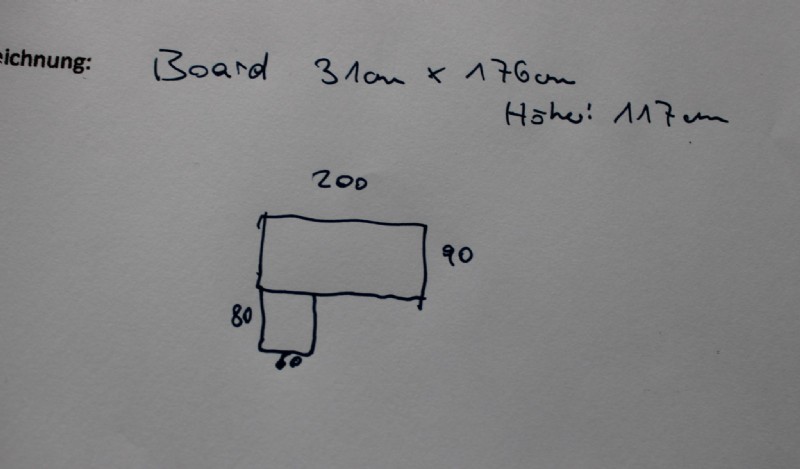 eichnung: Board 31cm x 176cm
Höhe: 117cm
200
90
80
60